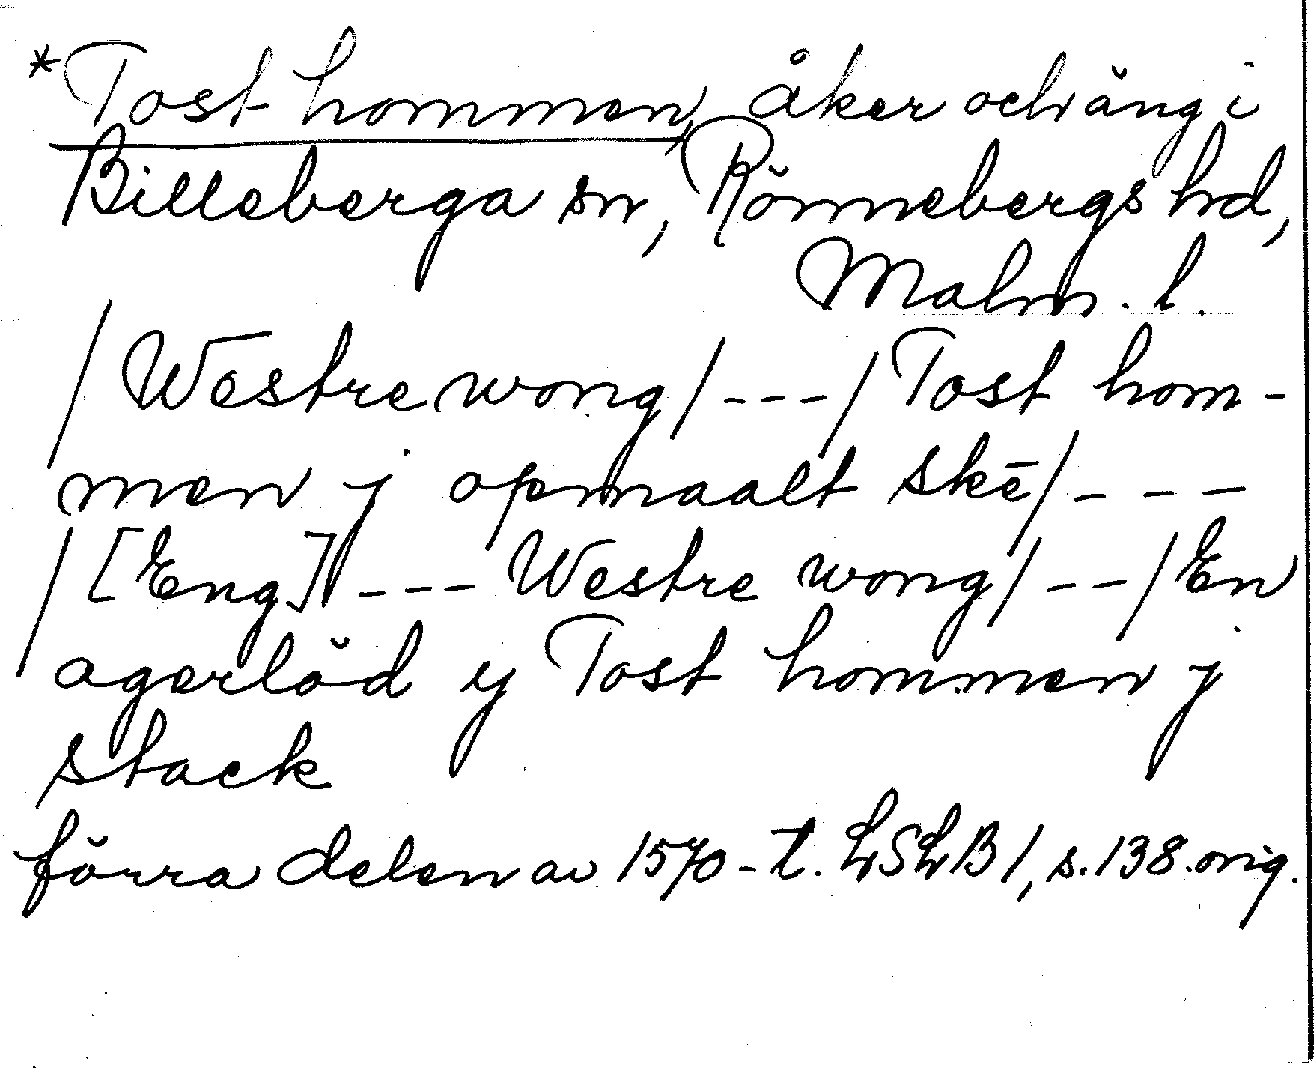 *Tost hommen, åker och äng i
Billeberga sn, Rönnebergs hd,
Malm. l.
/Westre wong/---/Tost hom-
men j opmaalt skē/---
/[Eng]/---Westre wong/--/En
agerlöd y Tost hommen j
stack
förra delen av 1570-t. LSLB 1, s. 138. orig.